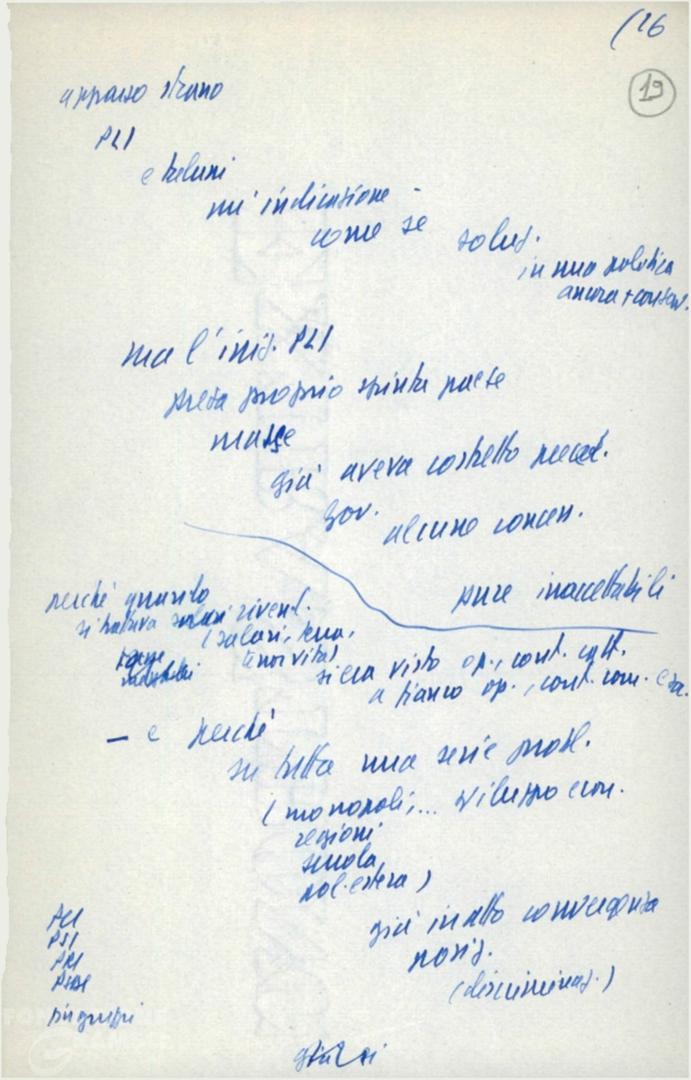 (26
19
apparso strano
PLI
e taluni
un' indicazione -
come se soluz.
in una politica
ancora + conserv.
ma l'iniz. PLI
presa proprio spinta paese
masse
già aveva costretto preced.
gov. alcune concess.
pure inaccettabili
perché quando
si trattava rivend.
(salari, terra,
tenor vita)
legge
si era visto op., cont. catt.
a fianco op., cont. com. e soc.
— e perché
su tutta una serie probl.
(monopoli,... sviluppo econ.
regioni
scuola
pol. estera)
già in atto convergenza
posiz.
(discriminaz.)
PCI
PSI
PRI
PSDI
sin gruppi